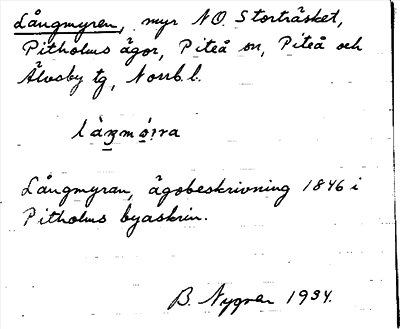 Långmyren, myr NO Storträsket,
Pitholms ägor, Piteå sn, Piteå och
Älvsby tg, Norrb. l.
Långmyran, ägobeskrivning 1846 i
Pitholms byaskrin.
B. Nygren 1934.